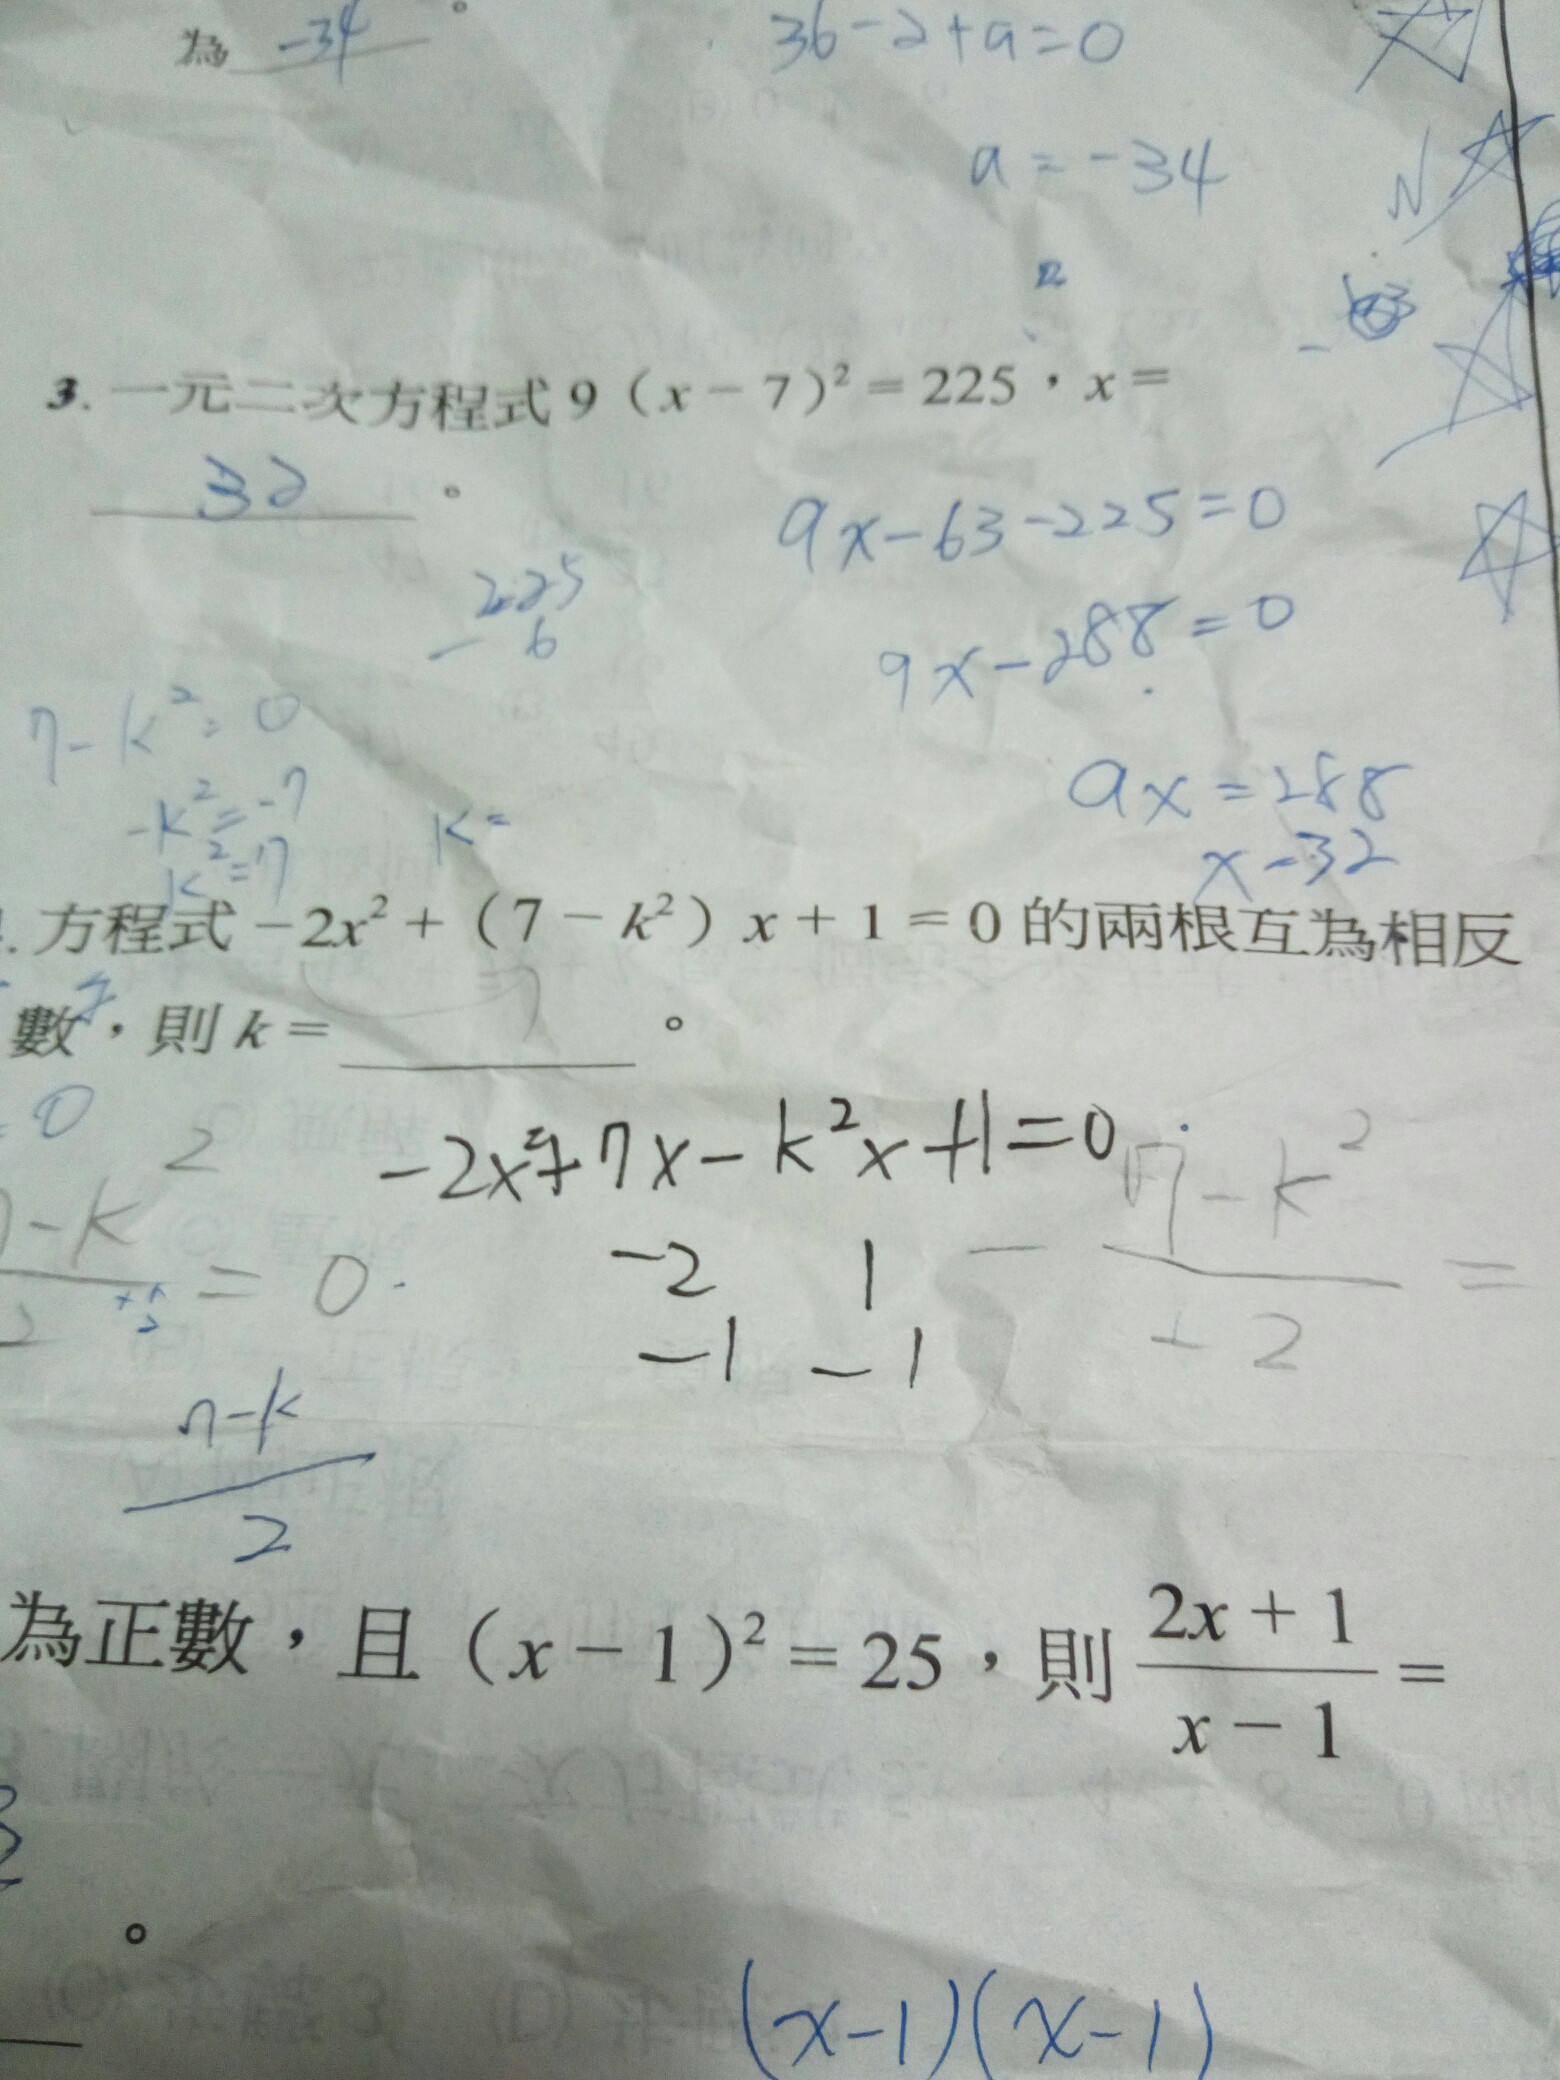 為 -34 。
36-2+a=0
a=-34
3. 一元二次方程式 9（x－7）²＝225，x＝
32 。
9x-63-225=0
225
- 6
9x-288=0
7-k²=0
-k²=-7
k²=7
k=
9x=288
x=32
. 方程式－2x²＋（7－k²）x＋1＝0 的兩根互為相反
數，則 k＝ 。
-2x²+7x-k²x+1=0
-2 1
-1 -1
7-k²
= 0
- 7-k² =
+2
7-k
2
為正數，且（x－1）²＝25，則 2x＋1 ＝
x－1
。
(x-1)(x-1)